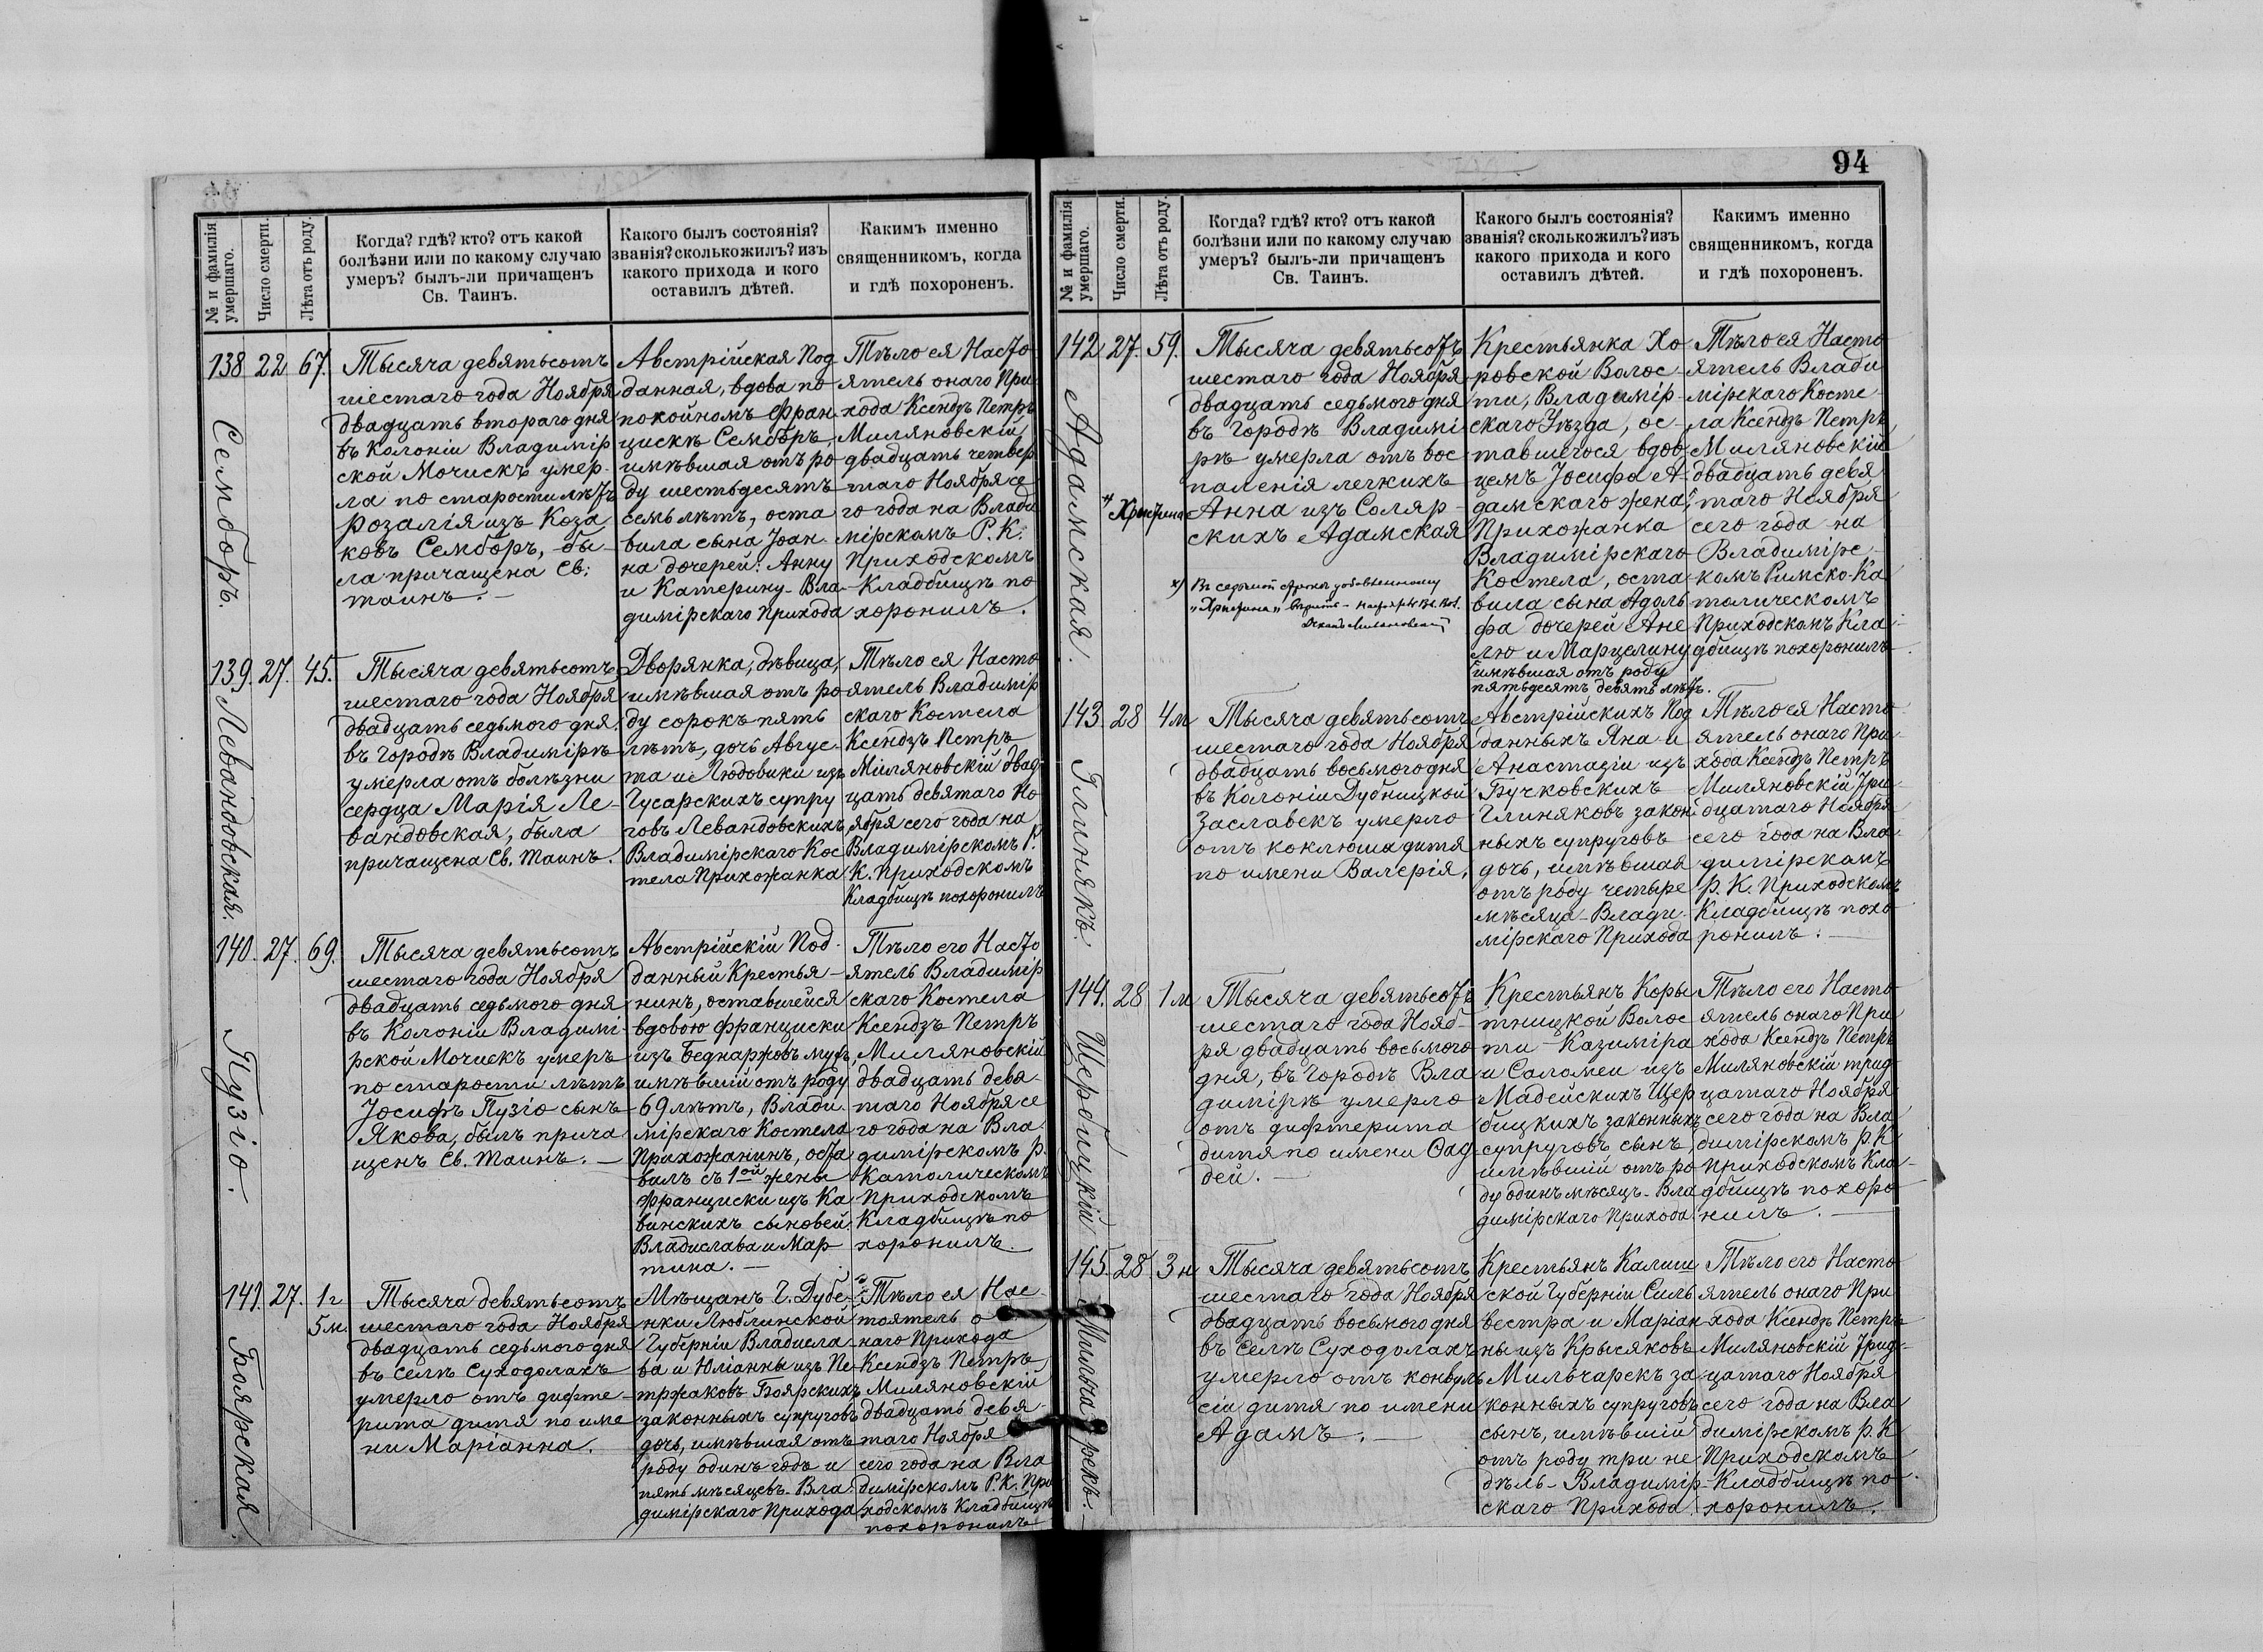 № и фамилія умершаго.
Число смерти.
Лѣта отъ роду.
Когда? гдѣ? кто? отъ какой
болѣзни или по какому случаю
умеръ? былъ-ли причащенъ
Св. Таинъ.
Какого былъ состоянія?
званія? сколько жилъ? изъ
какого прихода и кого
оставилъ дѣтей.
Какимъ именно
священникомъ, когда
и гдѣ похороненъ.
138
22
67.
Семборъ.
Тысяча девятьсотъ
шестаго года Ноября
двадцать втораго дня
въ Колоніи Владимір
ской Мочискъ умер-
ла по старости лѣтъ
Розалія изъ Коза
ковъ Семборъ, бы-
ла причащена Св:
таинъ.
Австрійская Под
данная, вдова по
покойномъ Фран
цискѣ Семборъ,
имѣвшая отъ ро
ду шестьдесятъ
семь лѣтъ, оста
вила сына Іоан
на дочерей: Анну
и Катерину - Вла-
димірскаго Прихода
Тѣло ея Насто
ятель онаго При
хода Ксендзъ Петръ
Миляновскій
двадцать четвер
таго Ноября се
го года на Влади
мірскомъ Р. К.
Приходскомъ
Кладбищѣ по
хоронилъ.
139.
27.
45.
Левандовская.
Тысяча девятьсотъ
шестаго года Ноября
двадцать седьмого дня
въ Городѣ Владимірѣ
умерла отъ болѣзни
сердца Марія Ле-
вандовская, была
причащена Св. таинъ.
Дворянка, дѣвица,
имѣвшая отъ ро
ду сорокъ пять
лѣтъ, дочь Авгус-
та и Людовики изъ
Гусарскихъ супру
говъ Левандовскихъ,
Владимірскаго Кос
тела Прихожанка
Тѣло ея Насто
ятель Владимір
скаго Костела
Ксендзъ Петръ
Миляновскій двад
цать девятаго Но
ября сего года на
Владимірскомъ Р.
К. Приходскомъ
Кладбищѣ похоронилъ
140.
27.
69.
Пузіо.
Тысяча девятьсотъ
шестаго года Ноября
двадцать седьмого дня
въ Колоніи Владимі-
рской Мочискъ умеръ
по старости лѣтъ
Іосифъ Пузіо сынъ
Якова, былъ прича
щенъ Св. таинъ.
Австрійскій Под-
данный Крестья-
нинъ, оставшейся
вдовою Франциски
изъ Беднаржовъ мужъ,
имѣвшій отъ роду
69 лѣтъ, Влади-
мірскаго Костела
Прихожанинъ, оста
вилъ съ 1ой жены
Франциски изъ Ка
винскихъ сыновей
Владислава и Мар
тина.
Тѣло его Насто
ятель Владимір
скаго Костела
Ксендзъ Петръ
Миляновскій
двадцать девя-
таго Ноября се
го года на Вла-
димірскомъ Р.
Католическомъ
Приходскомъ
Кладбищѣ по
хоронилъ.
141.
27.
1 г
5 м.
Боярская.
Тысяча девятьсотъ
шестаго года Ноября
двадцать седьмого дня
въ Селѣ Суходолахъ
умерло отъ дифте-
рита дитя по име
ни Маріанна.
Мѣщанъ Г. Дубе-
нки Люблинской
Губерніи Владисла-
ва и Юліанны изъ Пе-
тржаковъ Боярскихъ
законныхъ супруговъ
дочь, имѣвшая отъ
роду одинъ годъ и
пять мѣсяцевъ - Вла-
димірскаго Прихода
Тѣло ея Нас-
тоятель о
наго Прихода
Ксендзъ Петръ
Миляновскій
двадцать девя-
таго Ноября
сего года на Вла
димірскомъ Р. К. При
ходскомъ Кладбищѣ
похоронилъ
94
№ и фамилія умершаго.
Число смерти.
Лѣта отъ роду.
Когда? гдѣ? кто? отъ какой
болѣзни или по какому случаю
умеръ? былъ-ли причащенъ
Св. Таинъ.
Какого былъ состоянія?
званія? сколько жилъ? изъ
какого прихода и кого
оставилъ дѣтей.
Какимъ именно
священникомъ, когда
и гдѣ похороненъ.
142
27.
59.
Адамская.
Тысяча девятьсотъ
шестаго года Ноября
двадцать седьмого дня
въ Городѣ Владимі
рѣ умерла отъ вос
паленія легкихъ
Анна изъ Соляр-
скихъ Адамская
Крестьянка Хо
ровской Волос-
ти, Владимір-
скаго Уѣзда, ос-
тавшегося вдов-
цемъ Іосифа А-
дамскаго жена,
Прихожанка
Владимірскаго
Костела, оста-
вила сына Адоль
фа дочерей Ане
лю и Марцелину
имѣвшая отъ роду
пятьдесятъ девять лѣтъ.
Тѣло ея Насто
ятель Влади
мірскаго Косте-
ла Ксендзъ Петръ
Миляновскій
двадцать девя
таго Ноября
сего года на
Владимірс-
комъ Римско-Ка
толическомъ
Приходскомъ Кла-
дбищѣ похоронилъ
143.
28
4 м
Глинякъ.
Тысяча девятьсотъ
шестаго года Ноября
двадцать восьмого дня
въ Колоніи Дубницкой
Заславекъ умерло
отъ коклюша дитя
по имени Валерія.
Австрійскихъ Под
данныхъ Яна и
Анастазіи изъ
Бучковскихъ
Глиняковъ закон-
ныхъ супруговъ
дочь, имѣвшая
отъ роду четыре
мѣсяца - Влади-
мірскаго Прихода
Тѣло ея Насто
ятель онаго При
хода Ксендзъ Петръ
Миляновскій три
дцатаго Ноября
сего года на Вла-
димірскомъ
Р. К. Приходскомъ
Кладбищѣ похо
ронилъ.
144.
28
1 м
Щербицкій
Тысяча девятьсотъ
шестаго года Нояб-
ря двадцать восьмого
дня, въ Городѣ Вла
димірѣ умерло
отъ дифтерита
дитя по имени Фад
дей.
Крестьянъ Коры
тницкой Волос
ти - Казиміра
и Саломеи изъ
Мадейскихъ Щер
бицкихъ законныхъ
супруговъ сынъ,
имѣвшій отъ ро
ду одинъ мѣсяцъ - Вла
димірскаго Прихода
Тѣло его Насто
ятель онаго При
хода Ксендзъ Петръ
Миляновскій трид
цатаго Ноября
сего года на Вла
димірскомъ Р. К
Приходскомъ Кла-
дбищѣ похоро
нилъ.
145.
28
3 н
Мильчарекъ.
Тысяча девятьсотъ
шестаго года Ноября
двадцать восьмого дня
въ Селѣ Суходолахъ
умерло отъ конвуль
сіи дитя по имени
Адамъ.
Крестьянъ Калиш
ской Губерніи Силь
вестра и Маріан-
ны изъ Крысяковъ
Мильчарекъ за
конныхъ супруговъ
сынъ, имѣвшій
отъ роду три не
дѣль - Владимір
скаго Прихода
Тѣло его Насто
ятель онаго При
хода Ксендзъ Петръ
Миляновскій трид-
цатаго Ноября
сего года на Вла
димірскомъ Р. К
Приходскомъ
Кладбищѣ по-
хоронилъ.